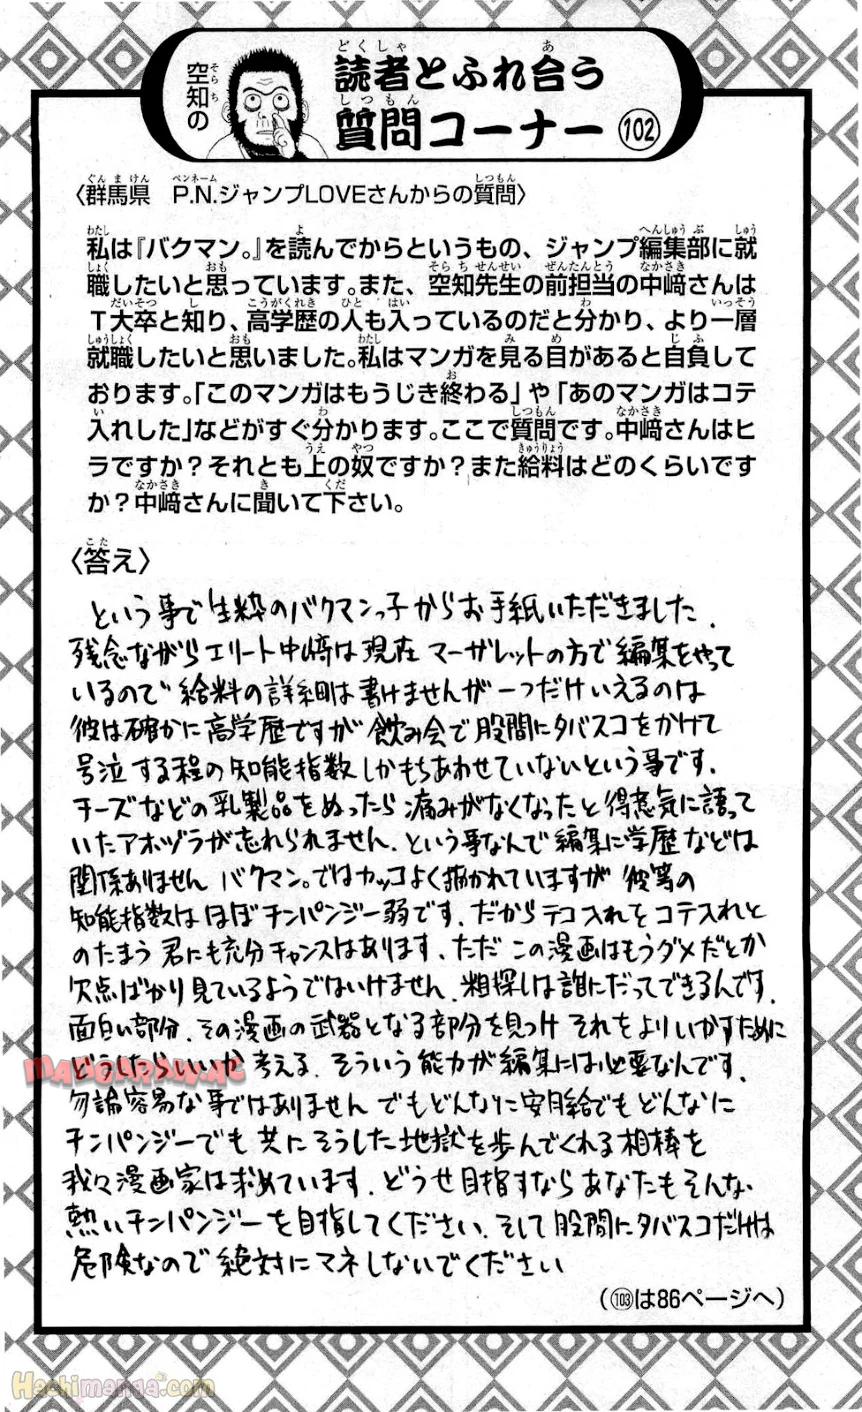 空知の
読者とふれ合う
質問コーナー 102
〈群馬県 P.N.ジャンプLOVEさんからの質問〉
私は『バクマン。』を読んでからというもの、ジャンプ編集部に就
職したいと思っています。また、空知先生の前担当の中﨑さんは
T大卒と知り、高学歴の人も入っているのだと分かり、より一層
就職したいと思いました。私はマンガを見る目があると自負して
おります。「このマンガはもうじき終わる」や「あのマンガはコテ
入れした」などがすぐ分かります。ここで質問です。中﨑さんはヒ
ラですか？それとも上の奴ですか？また給料はどのくらいです
か？中﨑さんに聞いて下さい。
〈答え〉
という事で生粋のバクマンっ子からお手紙いただきました．
残念ながらエリート中﨑は現在マーガレットの方で編集をやって
いるので給料の詳細は書けませんが一つだけいえるのは
彼は確かに高学歴ですが飲み会で股間にタバスコをかけて
号泣する程の知能指数しかもちあわせていないという事です．
チーズなどの乳製品をぬったら痛みがなくなったと得意気に語って
いたアホヅラが忘れられません．という事なんで編集に学歴などは
関係ありません バクマン。ではカッコよく描かれていますが彼等の
知能指数はほぼチンパンジー弱です．だからテコ入れをコテ入れと
のたまう君にも充分チャンスはあります．ただこの漫画はもうダメだとか
欠点ばかり見ているようではいけません．粗探しは誰にだってできるんです．
面白い部分．その漫画の武器となる部分を見つけそれをよりいかすために
どうしたらいいか考える．そういう能力が編集には必要なんです．
勿論容易な事ではありません でもどんなに安月給でもどんなに
チンパンジーでも共にそうした地獄を歩んでくれる相棒を
我々漫画家は求めています．どうせ目指すならあなたもそんな
熱いチンパンジーを目指してください．そして股間にタバスコだけは
危険なので絶対にマネしないでください
（103は86ページへ）
Hachimanga.com!